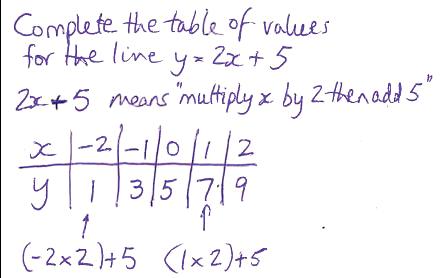 Complete the table of values
for the line y = 2x + 5
2x + 5 means "multiply x by 2 then add 5"
x | -2 | -1 | 0 | 1 | 2
y | 1 | 3 | 5 | 7 | 9
(-2 x 2)+5 (1 x 2)+5